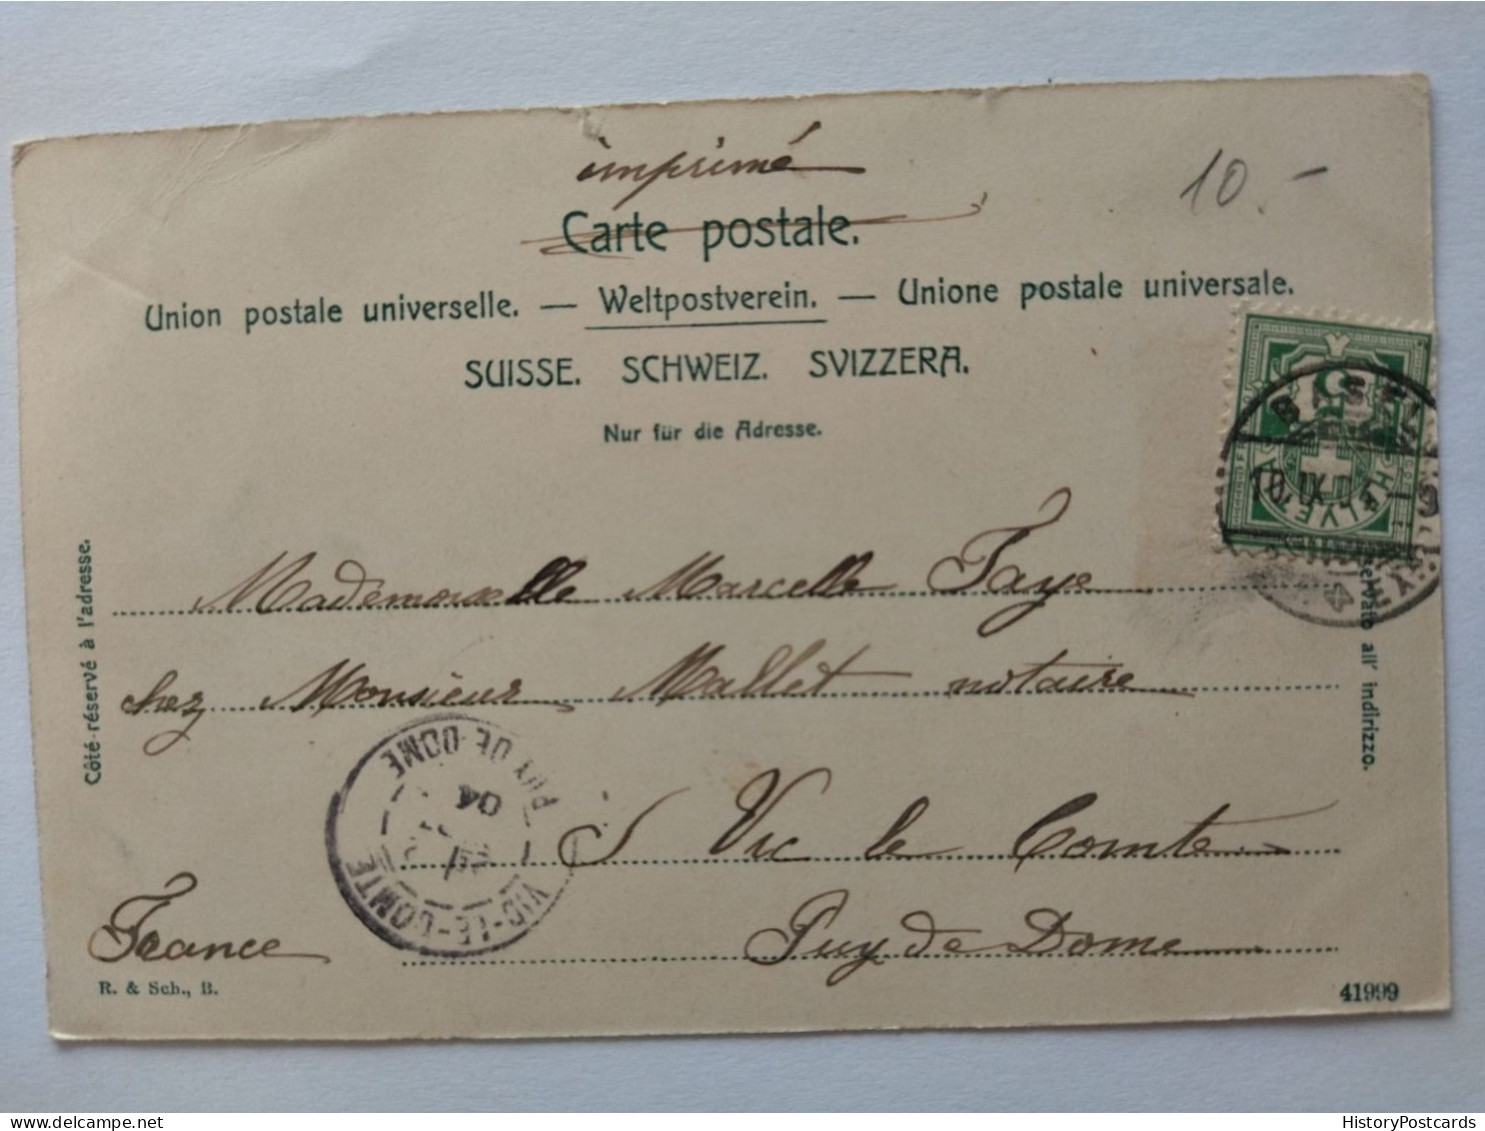 imprimé
10.-
Carte postale.
Union postale universelle. — Weltpostverein. — Unione postale universale.
SUISSE. SCHWEIZ. SVIZZERA.
Nur für die Adresse.
Côté réservé à l'adresse.
HELVETIA
BASEL
10.IX.
Mademoiselle Marcelle Faye
chez Monsieur Mallet notaire
à Vic le Comte
Puy de Dome
France
VIC-LE-COMTE
PUY-DE-DOME
04
all' indirizzo.
R. & Sch., B.
41999
HistoryPostcards.com